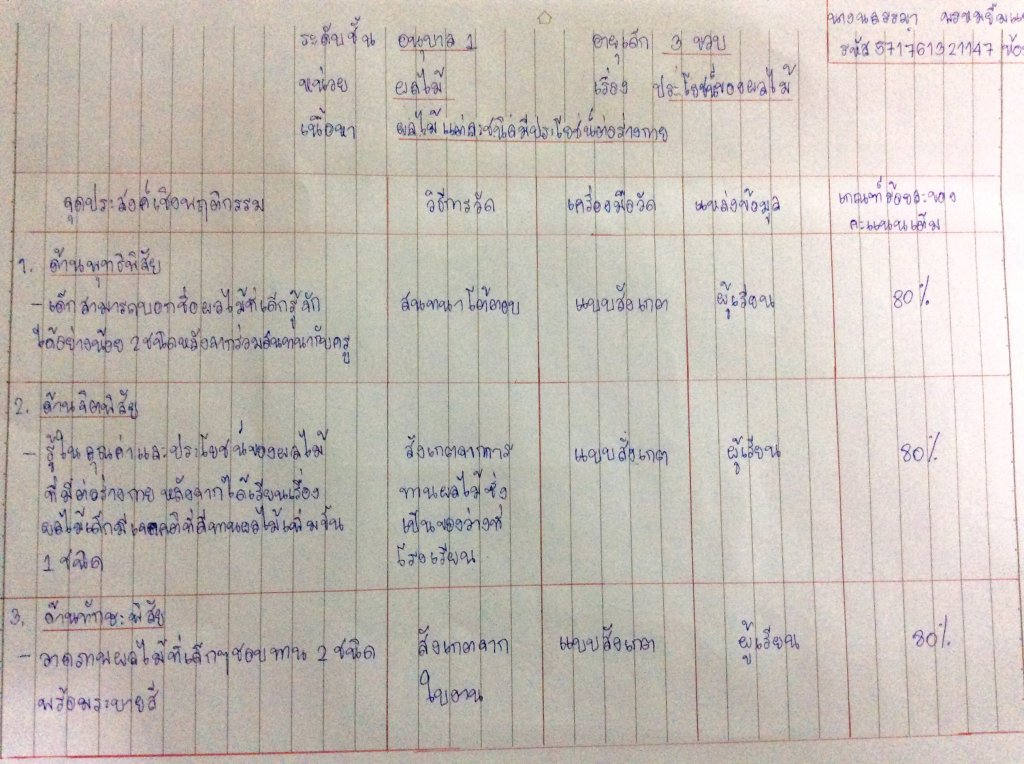 รหัส 571761321147
ระดับชั้น อนุบาล 1 อายุเด็ก 3 ขวบ
หน่วย ผลไม้ เรื่อง ประโยชน์ของผลไม้
เนื้อหา ผลไม้แต่ละชนิดมีประโยชน์ต่อร่างกาย
จุดประสงค์เชิงพฤติกรรม
วิธีการวัด
เครื่องมือวัด
แหล่งข้อมูล
เกณฑ์ร้อยละของ
คะแนนเต็ม
1. ด้านพุทธิพิสัย
- เด็กสามารถบอกชื่อผลไม้ที่เด็กรู้จัก
ได้อย่างน้อย 2 ชนิดหลังจากร่วมสนทนากับครู
สนทนาโต้ตอบ
แบบสังเกต
ผู้เรียน
80%
2. ด้านจิตพิสัย
- รู้ในคุณค่าและประโยชน์ของผลไม้
ที่มีต่อร่างกาย หลังจากได้เรียนเรื่อง
ผลไม้เด็กมีเจตคติที่ดีทานผลไม้เพิ่มขึ้น
1 ชนิด
สังเกตจากการ
ทานผลไม้ซึ่ง
เป็นของว่างที่
โรงเรียน
แบบสังเกต
ผู้เรียน
80%
3. ด้านทักษะพิสัย
- วาดภาพผลไม้ที่เด็กๆชอบทาน 2 ชนิด
พร้อมระบายสี
สังเกตจาก
ใบงาน
แบบสังเกต
ผู้เรียน
80%